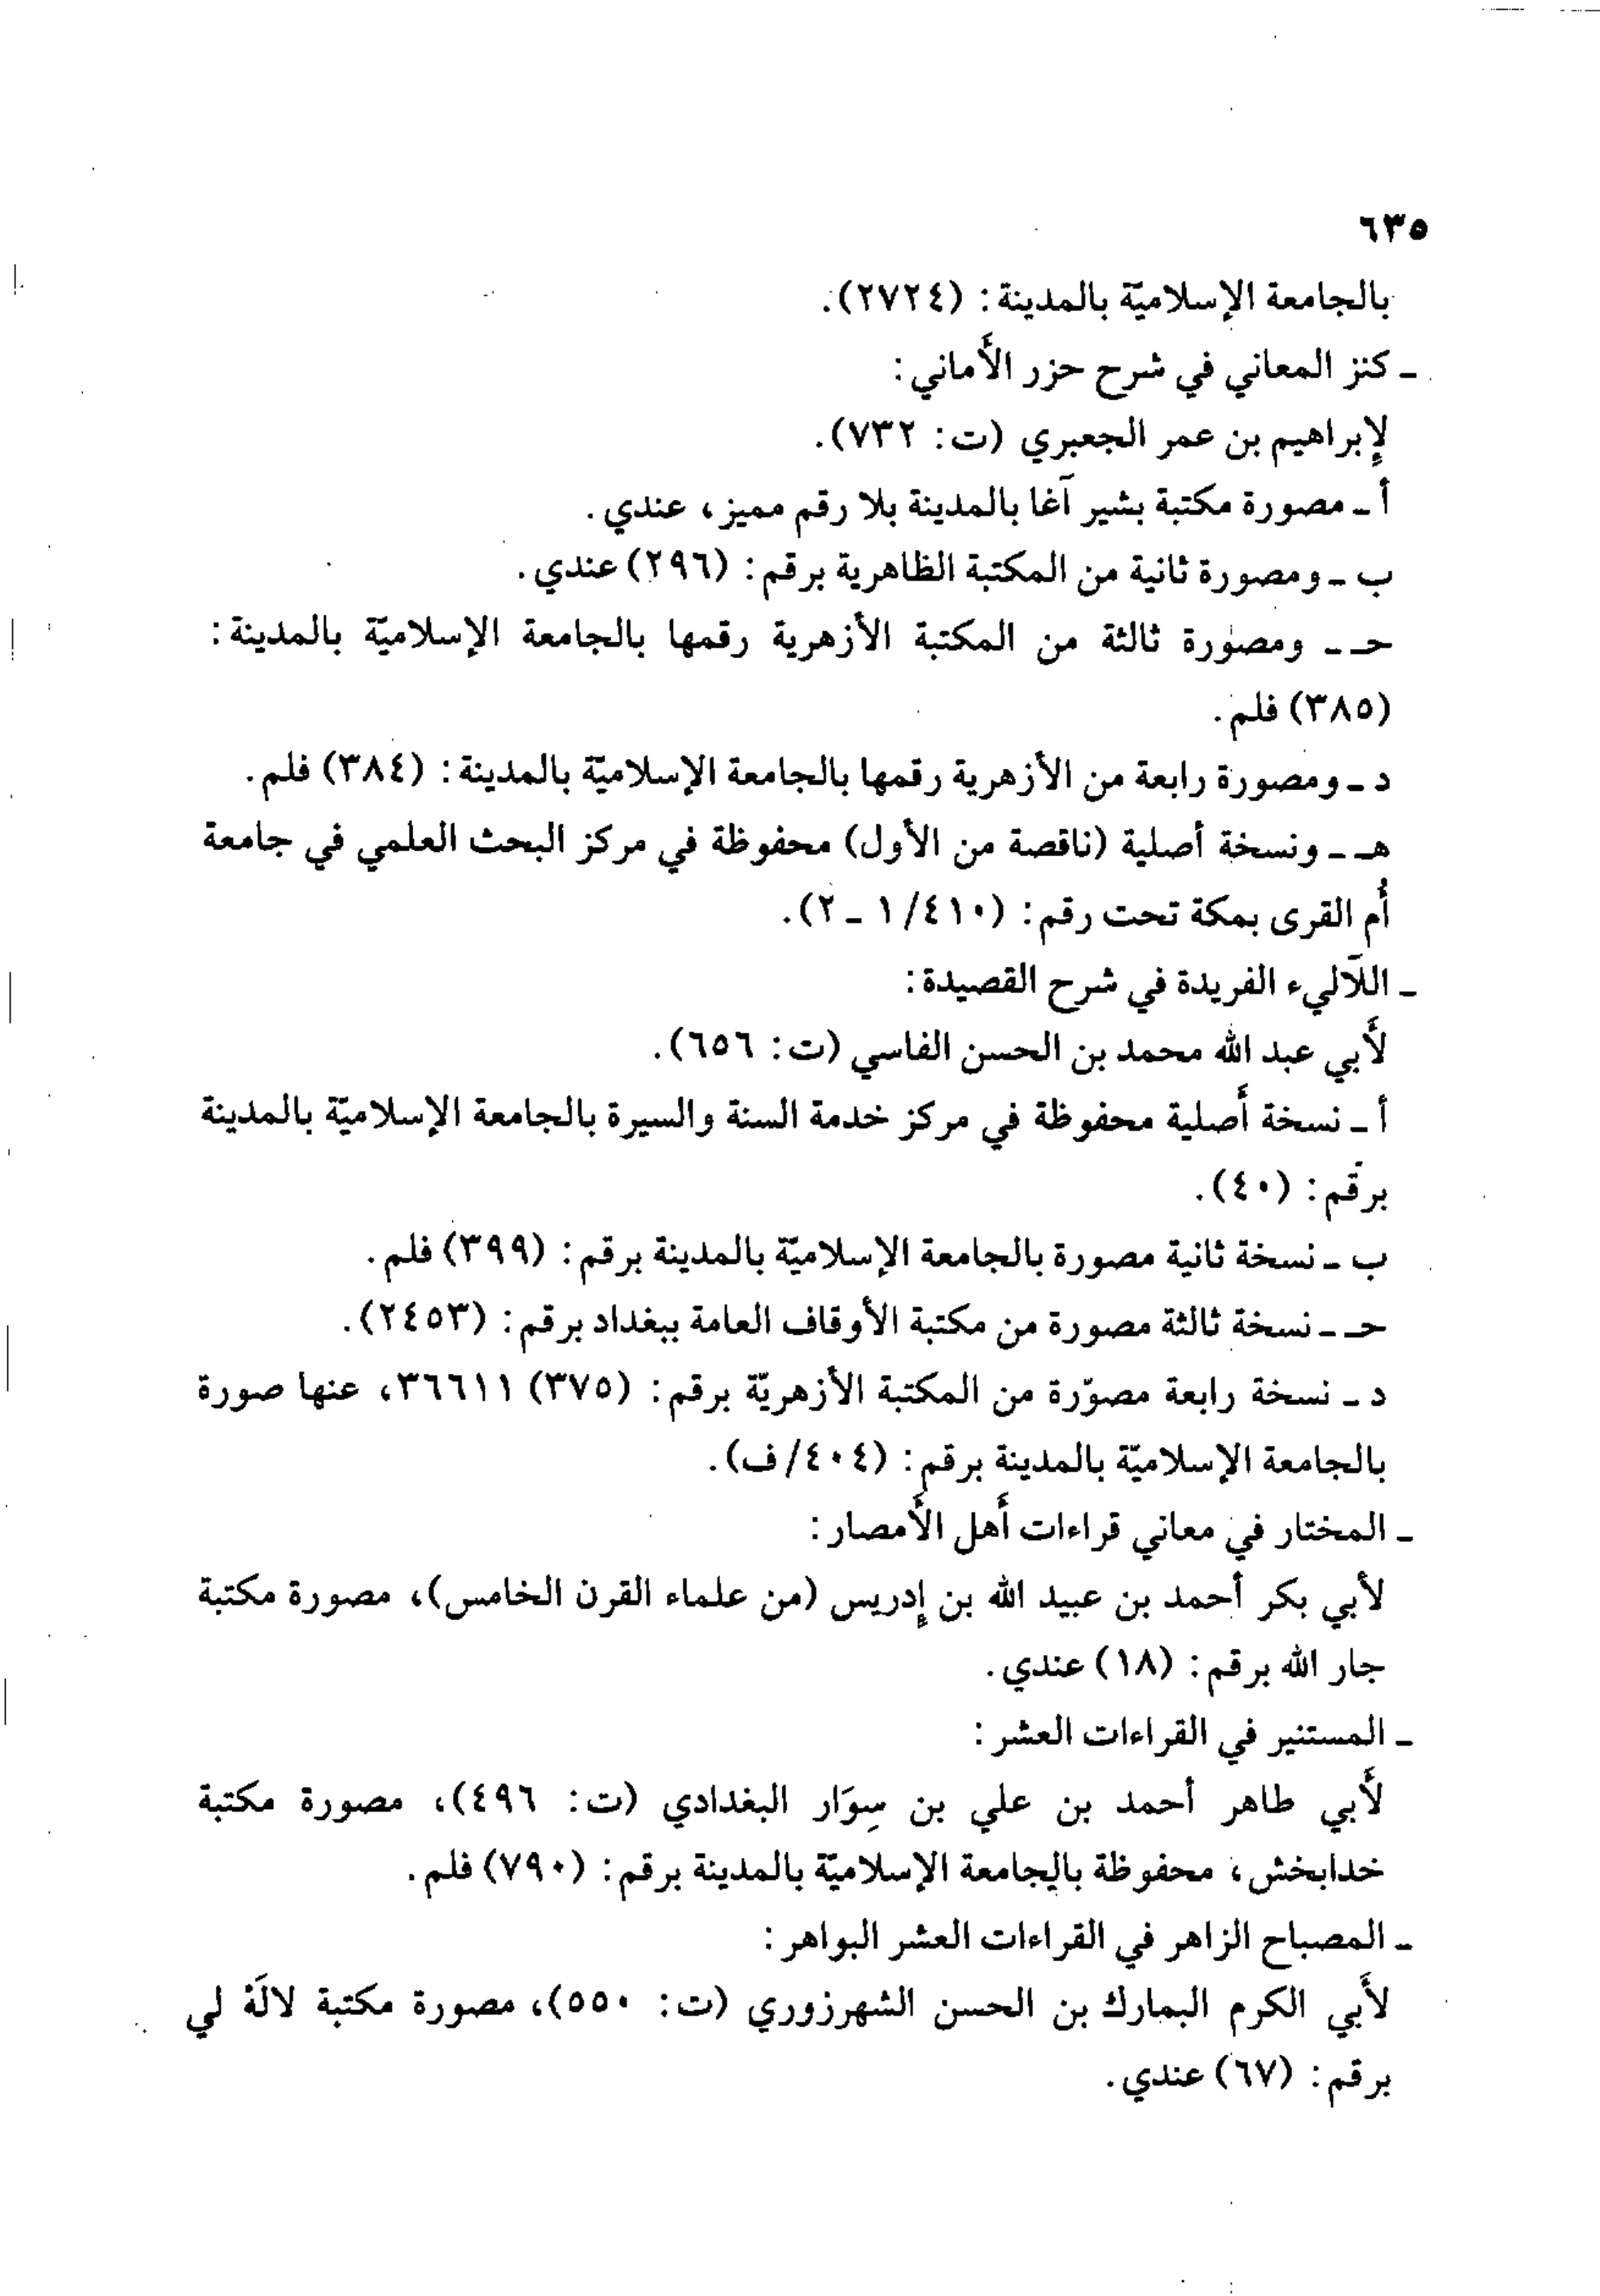 ٦٣٥
بالجامعة الإسلاميّة بالمدينة: (٢٧٢٤).
ـ كنز المعاني في شرح حزر الأَماني:
لإِبراهيم بن عمر الجعبري (ت: ٧٣٢).
أ ـ مصورة مكتبة بشير آغا بالمدينة بلا رقم مميز، عندي.
ب ـ ومصورة ثانية من المكتبة الظاهرية برقم: (٢٩٦) عندي.
حـ ـ ومصورة ثالثة من المكتبة الأزهرية رقمها بالجامعة الإسلاميّة بالمدينة:
(٣٨٥) فلم.
د ـ ومصورة رابعة من الأزهرية رقمها بالجامعة الإسلاميّة بالمدينة: (٣٨٤) فلم.
هـ ـ ونسخة أصلية (ناقصة من الأول) محفوظة في مركز البحث العلمي في جامعة
أُم القرى بمكة تحت رقم: (٤١٠/ ١ ـ ٢).
ـ اللآليء الفريدة في شرح القصيدة:
لأَبي عبد الله محمد بن الحسن الفاسي (ت: ٦٥٦).
أ ـ نسخة أَصلية محفوظة في مركز خدمة السنة والسيرة بالجامعة الإسلاميّة بالمدينة
برقم: (٤٠).
ب ـ نسخة ثانية مصورة بالجامعة الإسلاميّة بالمدينة برقم: (٣٩٩) فلم.
حـ ـ نسخة ثالثة مصورة من مكتبة الأوقاف العامة ببغداد برقم: (٢٤٥٣).
د ـ نسخة رابعة مصوّرة من المكتبة الأزهريّة برقم: (٣٧٥) ٣٦٦١١، عنها صورة
بالجامعة الإسلاميّة بالمدينة برقم: (٤٠٤/ ف).
ـ المختار في معاني قراءات أَهل الأَمصار:
لأبي بكر أحمد بن عبيد الله بن إِدريس (من علماء القرن الخامس)، مصورة مكتبة
جار الله برقم: (١٨) عندي.
ـ المستنير في القراءات العشر:
لأَبي طاهر أحمد بن علي بن سِوَار البغدادي (ت: ٤٩٦)، مصورة مكتبة
خدابخش، محفوظة بالجامعة الإسلاميّة بالمدينة برقم: (٧٩٠) فلم.
ـ المصباح الزاهر في القراءات العشر البواهر:
لأَبي الكرم المبارك بن الحسن الشهرزوري (ت: ٥٥٠)، مصورة مكتبة لالَهْ لي
برقم: (٦٧) عندي.